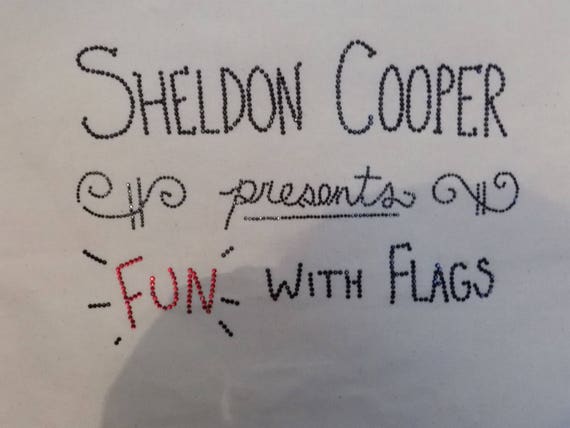 SHELDON COOPER
presents
FUN WITH FLAGS